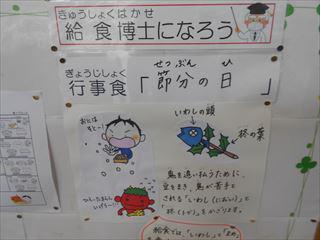 きゅうしょくはかせ
給食博士になろう
ぎょうじしょく　せつぶん　ひ
行事食「節分の日」
おには
そと〜!
いわしの頭
柊の葉
鬼を追い払うために、
豆をまき、鬼が苦手と
される「いわし(におい)」と
柊(トゲ)をかざります。
給食では、「いわし」と「まめ